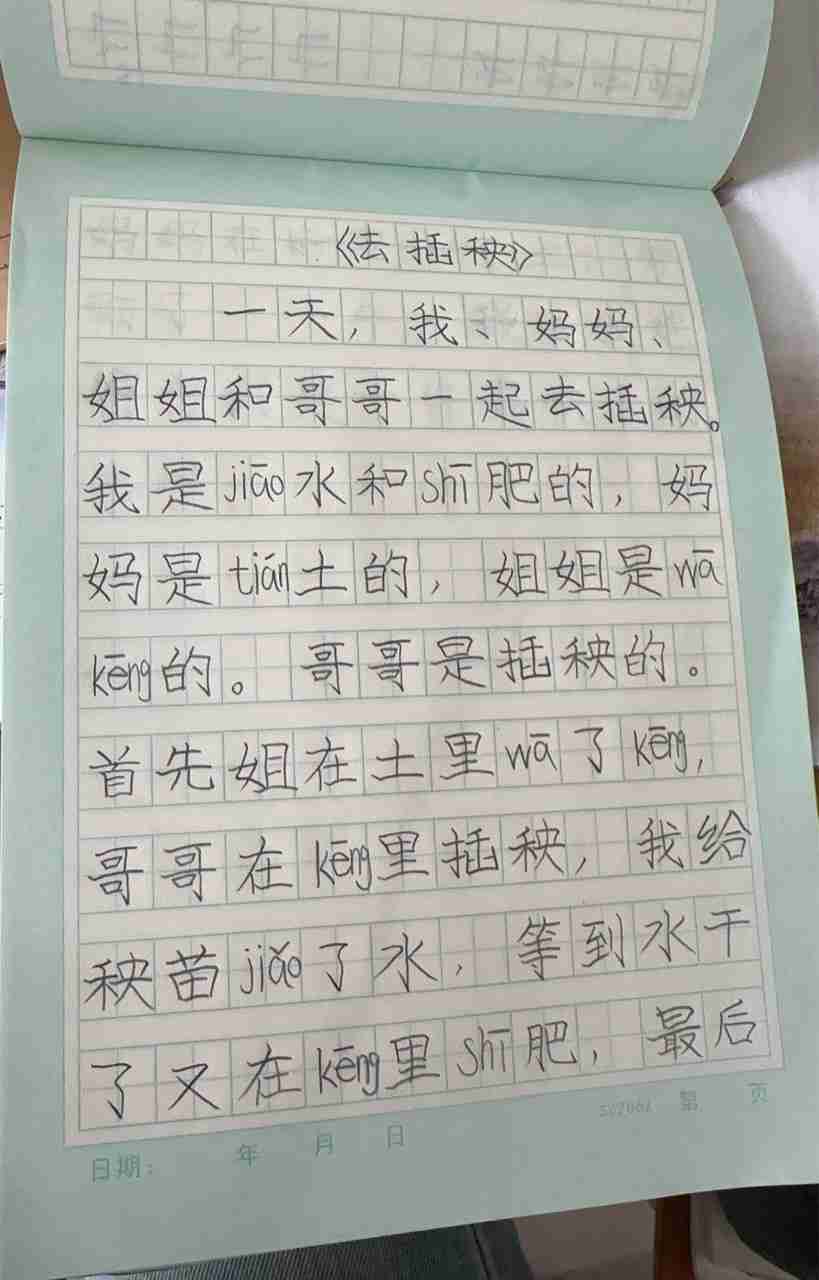 《去插秧》
一天，我、妈妈、
姐姐和哥哥一起去插秧。
我是jiāo水和shī肥的，妈
妈是tián土的，姐姐是wā
kēng的。哥哥是插秧的。
首先姐在土里wā了kēng，
哥哥在kēng里插秧，我给
秧苗jiǎo了水，等到水干
了又在kēng里shī肥，最后
日期： 年 月 日 第 页